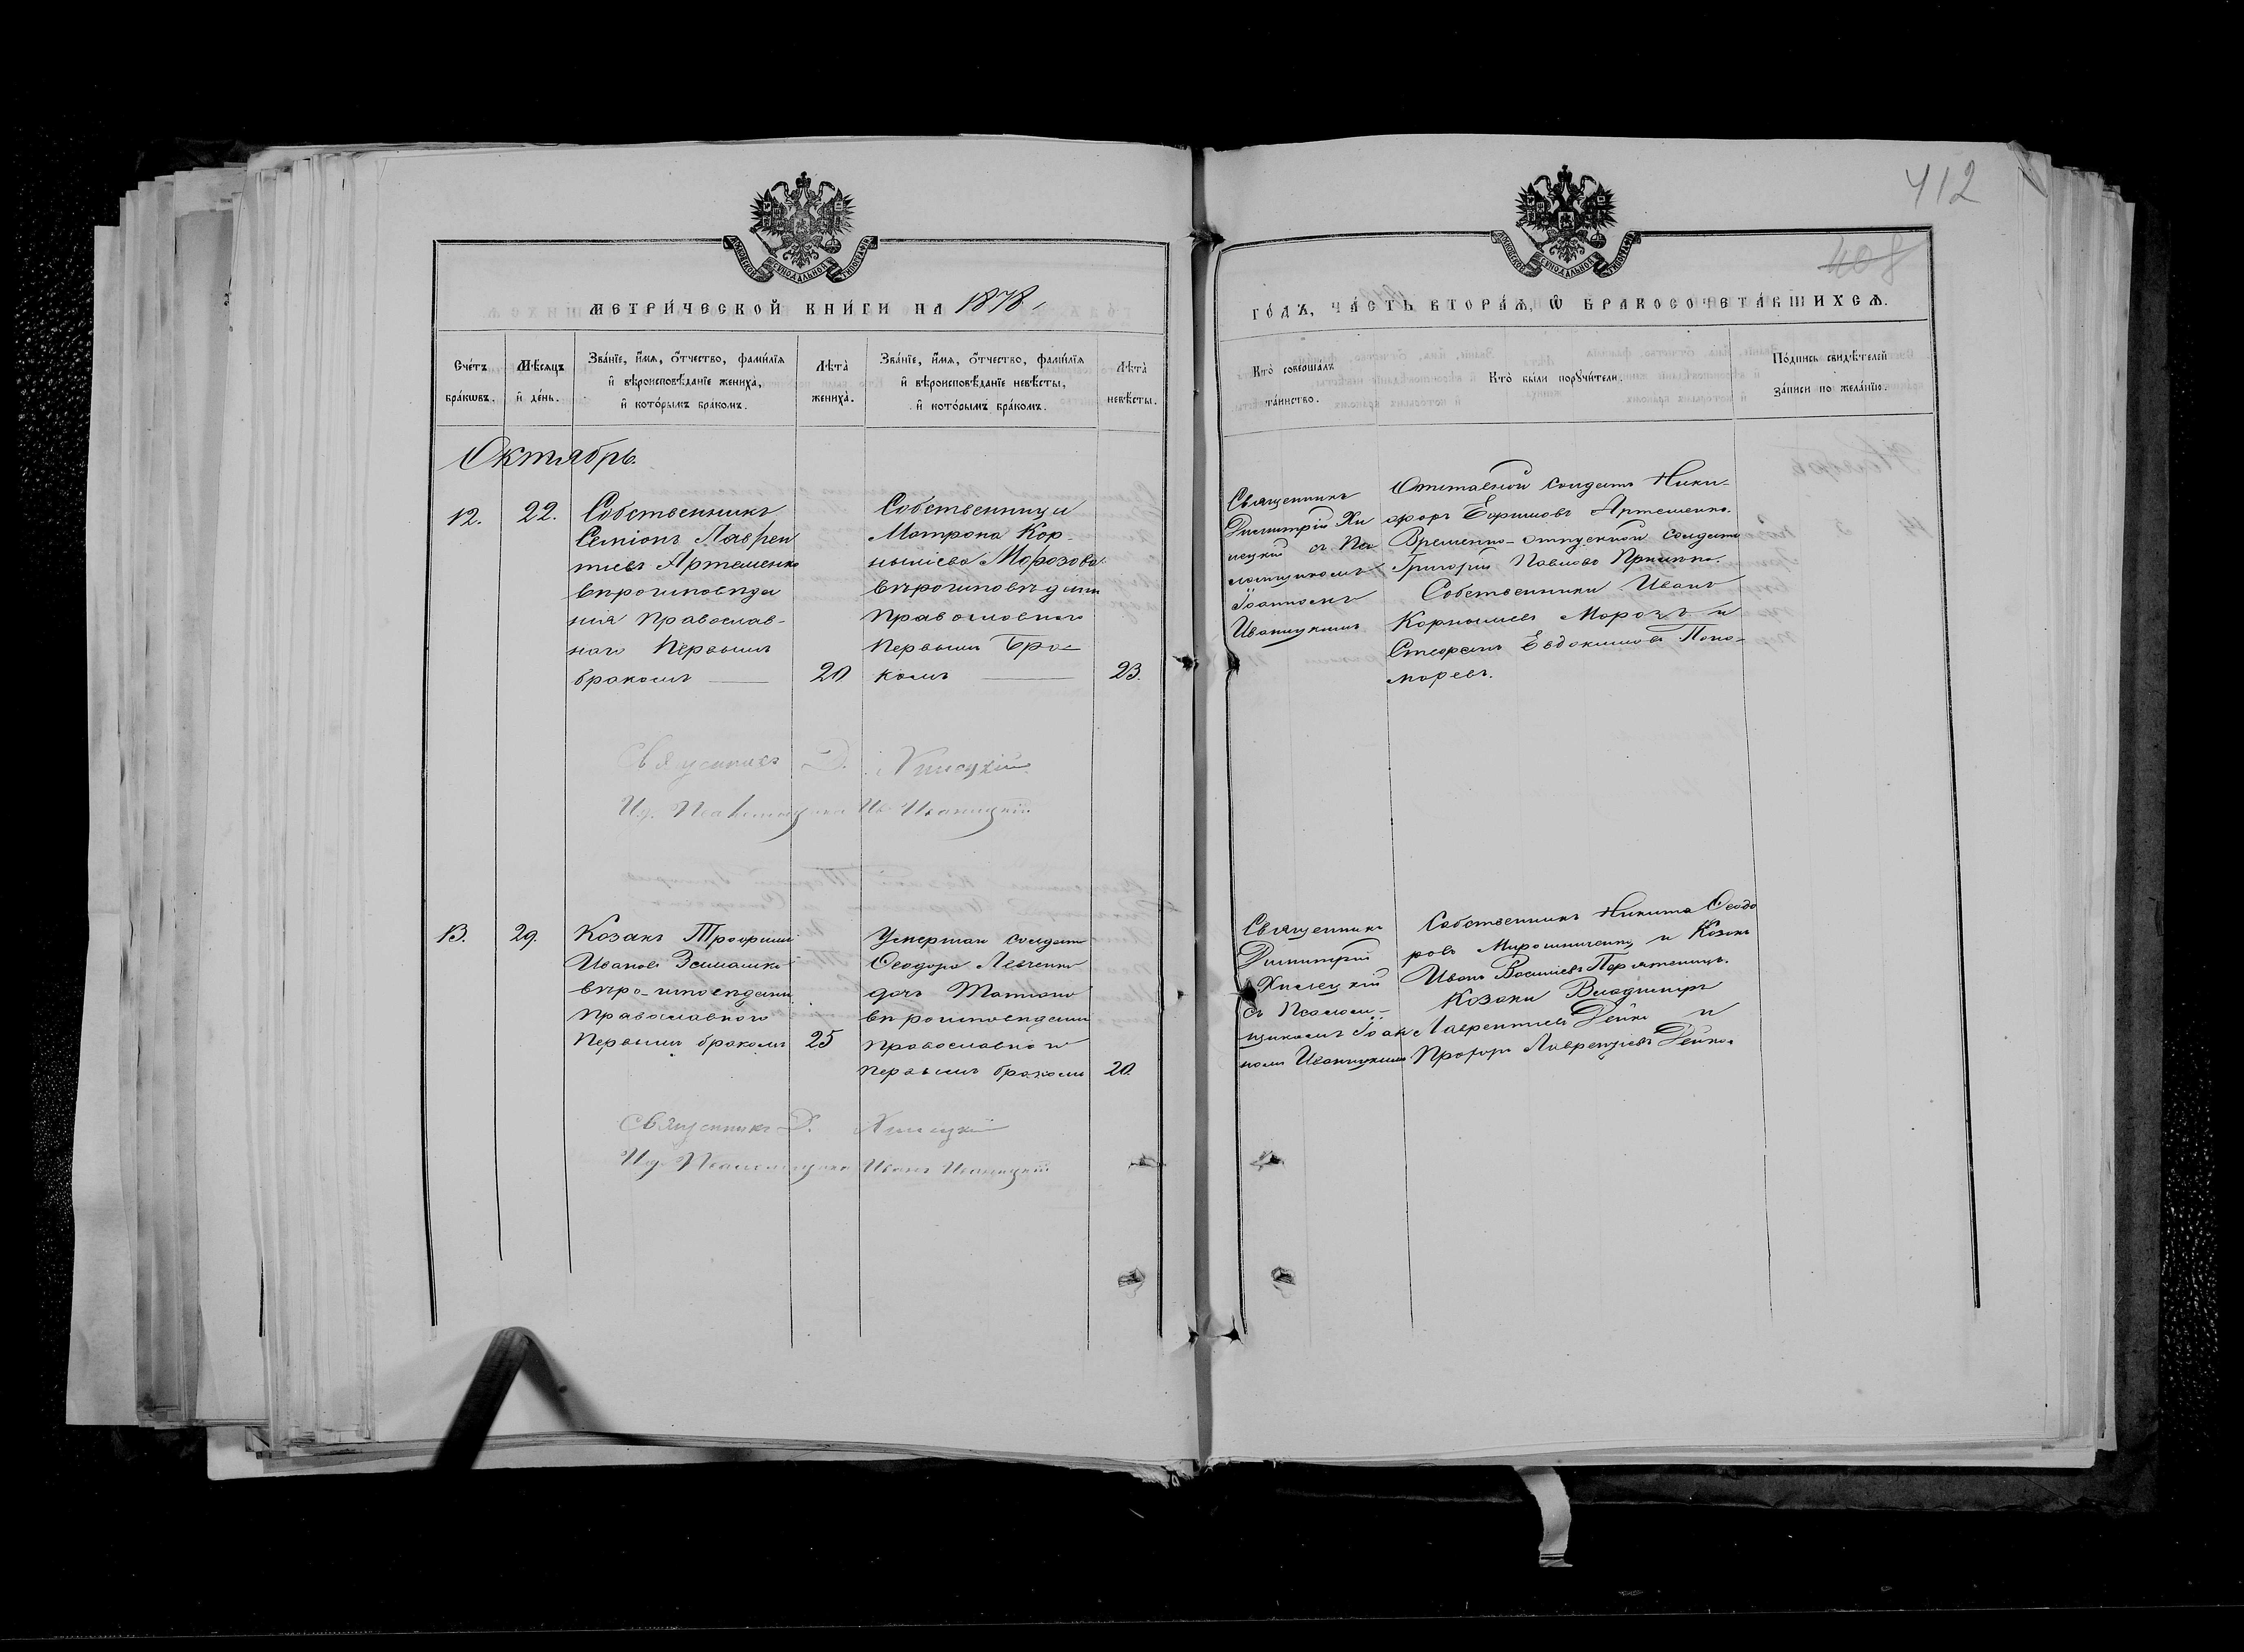 412
408
МЕТРИ́ЧЕСКОЙ КНИ́ГИ НА 1878
ГО́ДЪ, ЧА́СТЬ ВТОРА́Ѧ, Ѡ҆ БРАКОСОЧЕТА́ВШИХСѦ.
Сче́тъ бра́кѡвъ.
Мѣ́сѧцъ и҆ де́нь.
Зва́нїе, и҆́мѧ, ѻ҆́тчество, фами́лїѧ
и҆ вѣроисповѣ́данїе жениха̀,
и҆ кото́рымъ бра́комъ.
Лѣ́та жениха̀.
Зва́нїе, и҆́мѧ, ѻ҆́тчество, фами́лїѧ
и҆ вѣроисповѣ́данїе невѣ́сты,
и҆ кото́рымъ бра́комъ.
Лѣ́та невѣ́сты.
Кто̀ соверша́лъ та́инство.
Кто̀ бы́ли порꙋчи́тели.
По́дпись свидѣ́телей
за́писи по жела́нїю.
Октябрь.
12.
22.
Собственникъ
Семіонъ Лаврен
тіевъ Артеменко
вѣроисповѣда
нія Православ-
наго Первымъ
бракомъ
20
Собственница
Матрона Кор-
ныліева Морозова
вѣроисповѣданія
Православнаго
Первымъ Бра-
комъ
23.
Священникъ
Димитрій Хи
лецкій съ Пса
ломщикомъ
Іоанномъ
Иваницкимъ
Отставной солдатъ Ники-
форъ Ефимовъ Артеменко.
Временно-отпускной солдатъ
Григорій Павловъ
Собственники Иванъ
Корныліевъ Морозъ и
Стефанъ Евдокимовъ Поно-
моревъ.
Священникъ Д. Хилецкій
И.д. Псаломщика Ив. Иваницкій
13.
29.
Козакъ Трофимъ
Ивановъ
вѣро-исповѣданія
Православнаго
Первымъ бракомъ
25
Умершаго солдата
Ѳеодора Левченко
дочь Татіана
вѣроисповѣданія
Православнаго
первымъ бракомъ
20.
Священникъ
Димитрій
Хилецкій
съ Псалом-
щикомъ Іоан
номъ Иваницкимъ
Собственникъ Никита Ѳеодо
ровъ Мирошниченко и Козакъ
Иванъ Васильевъ
Козаки Владиміръ
Лаврентіевъ Дейко и
Прохоръ Лаврентіевъ Дейко.
Священникъ Д. Хилецкій
И.д. Псаломщика Иванъ Иваницкій